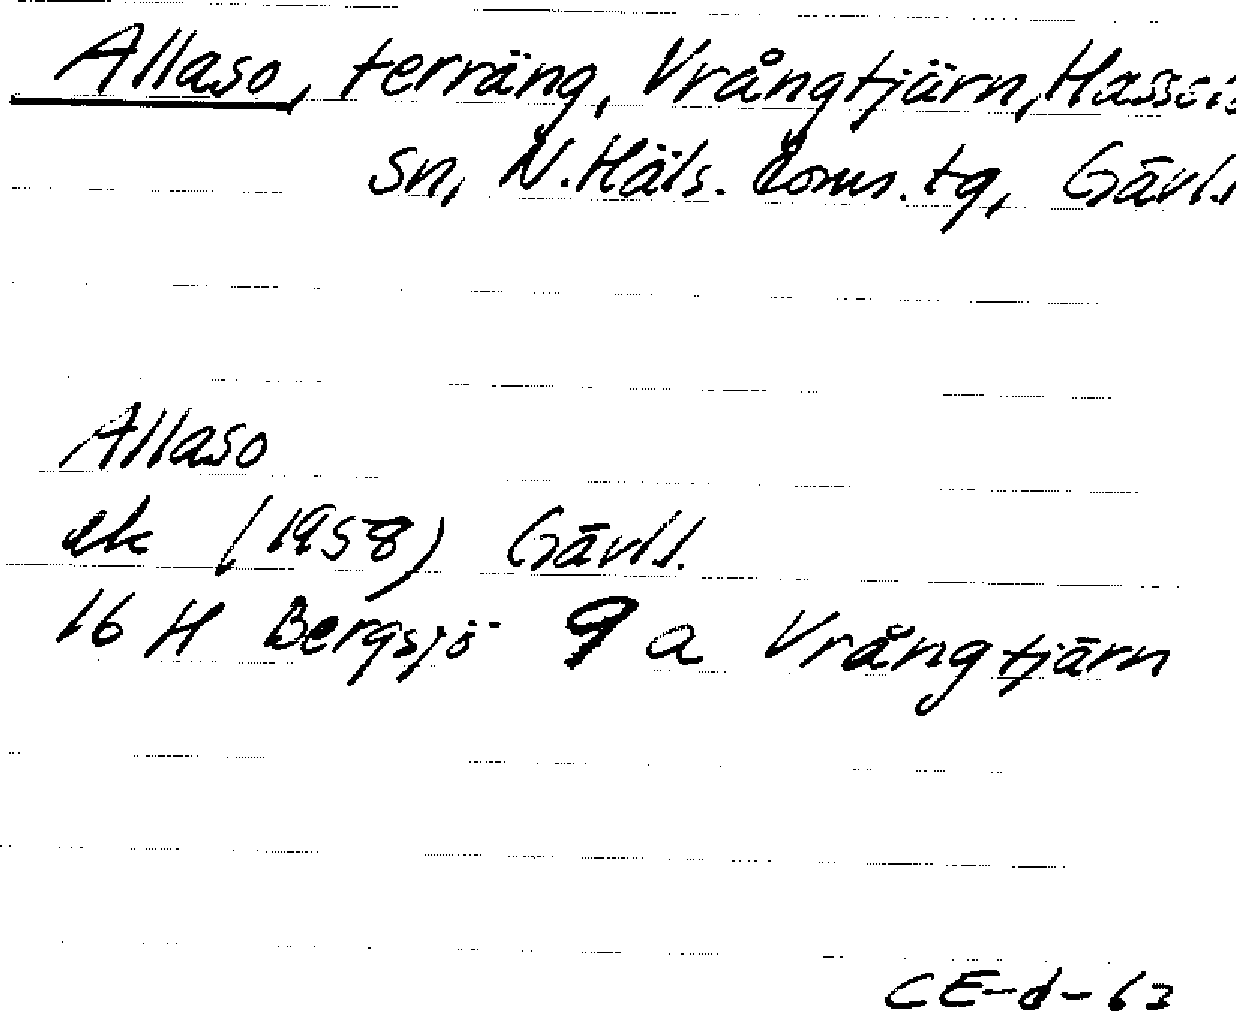 Allaso, terräng, Vrångtjärn, Hassela
sn, N. Häls. doms. tg, Gävl.
Allaso
ek (1958) Gävl.l.
16 H Bergsjö 9 a Vrångtjärn
CE-d-63